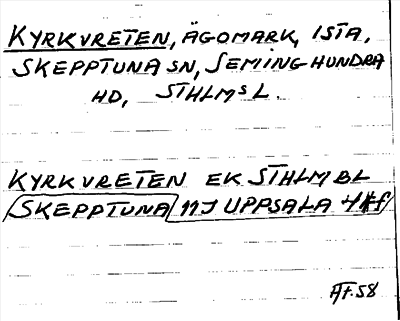 KYRKVRETEN, ÄGOMARK, ISTA,
SKEPPTUNA SN, SEMINGHUNDRA
HD, STHLMS L.
KYRKVRETEN EK STHLM BL
SKEPPTUNA 11J UPPSALA
ÄF.58